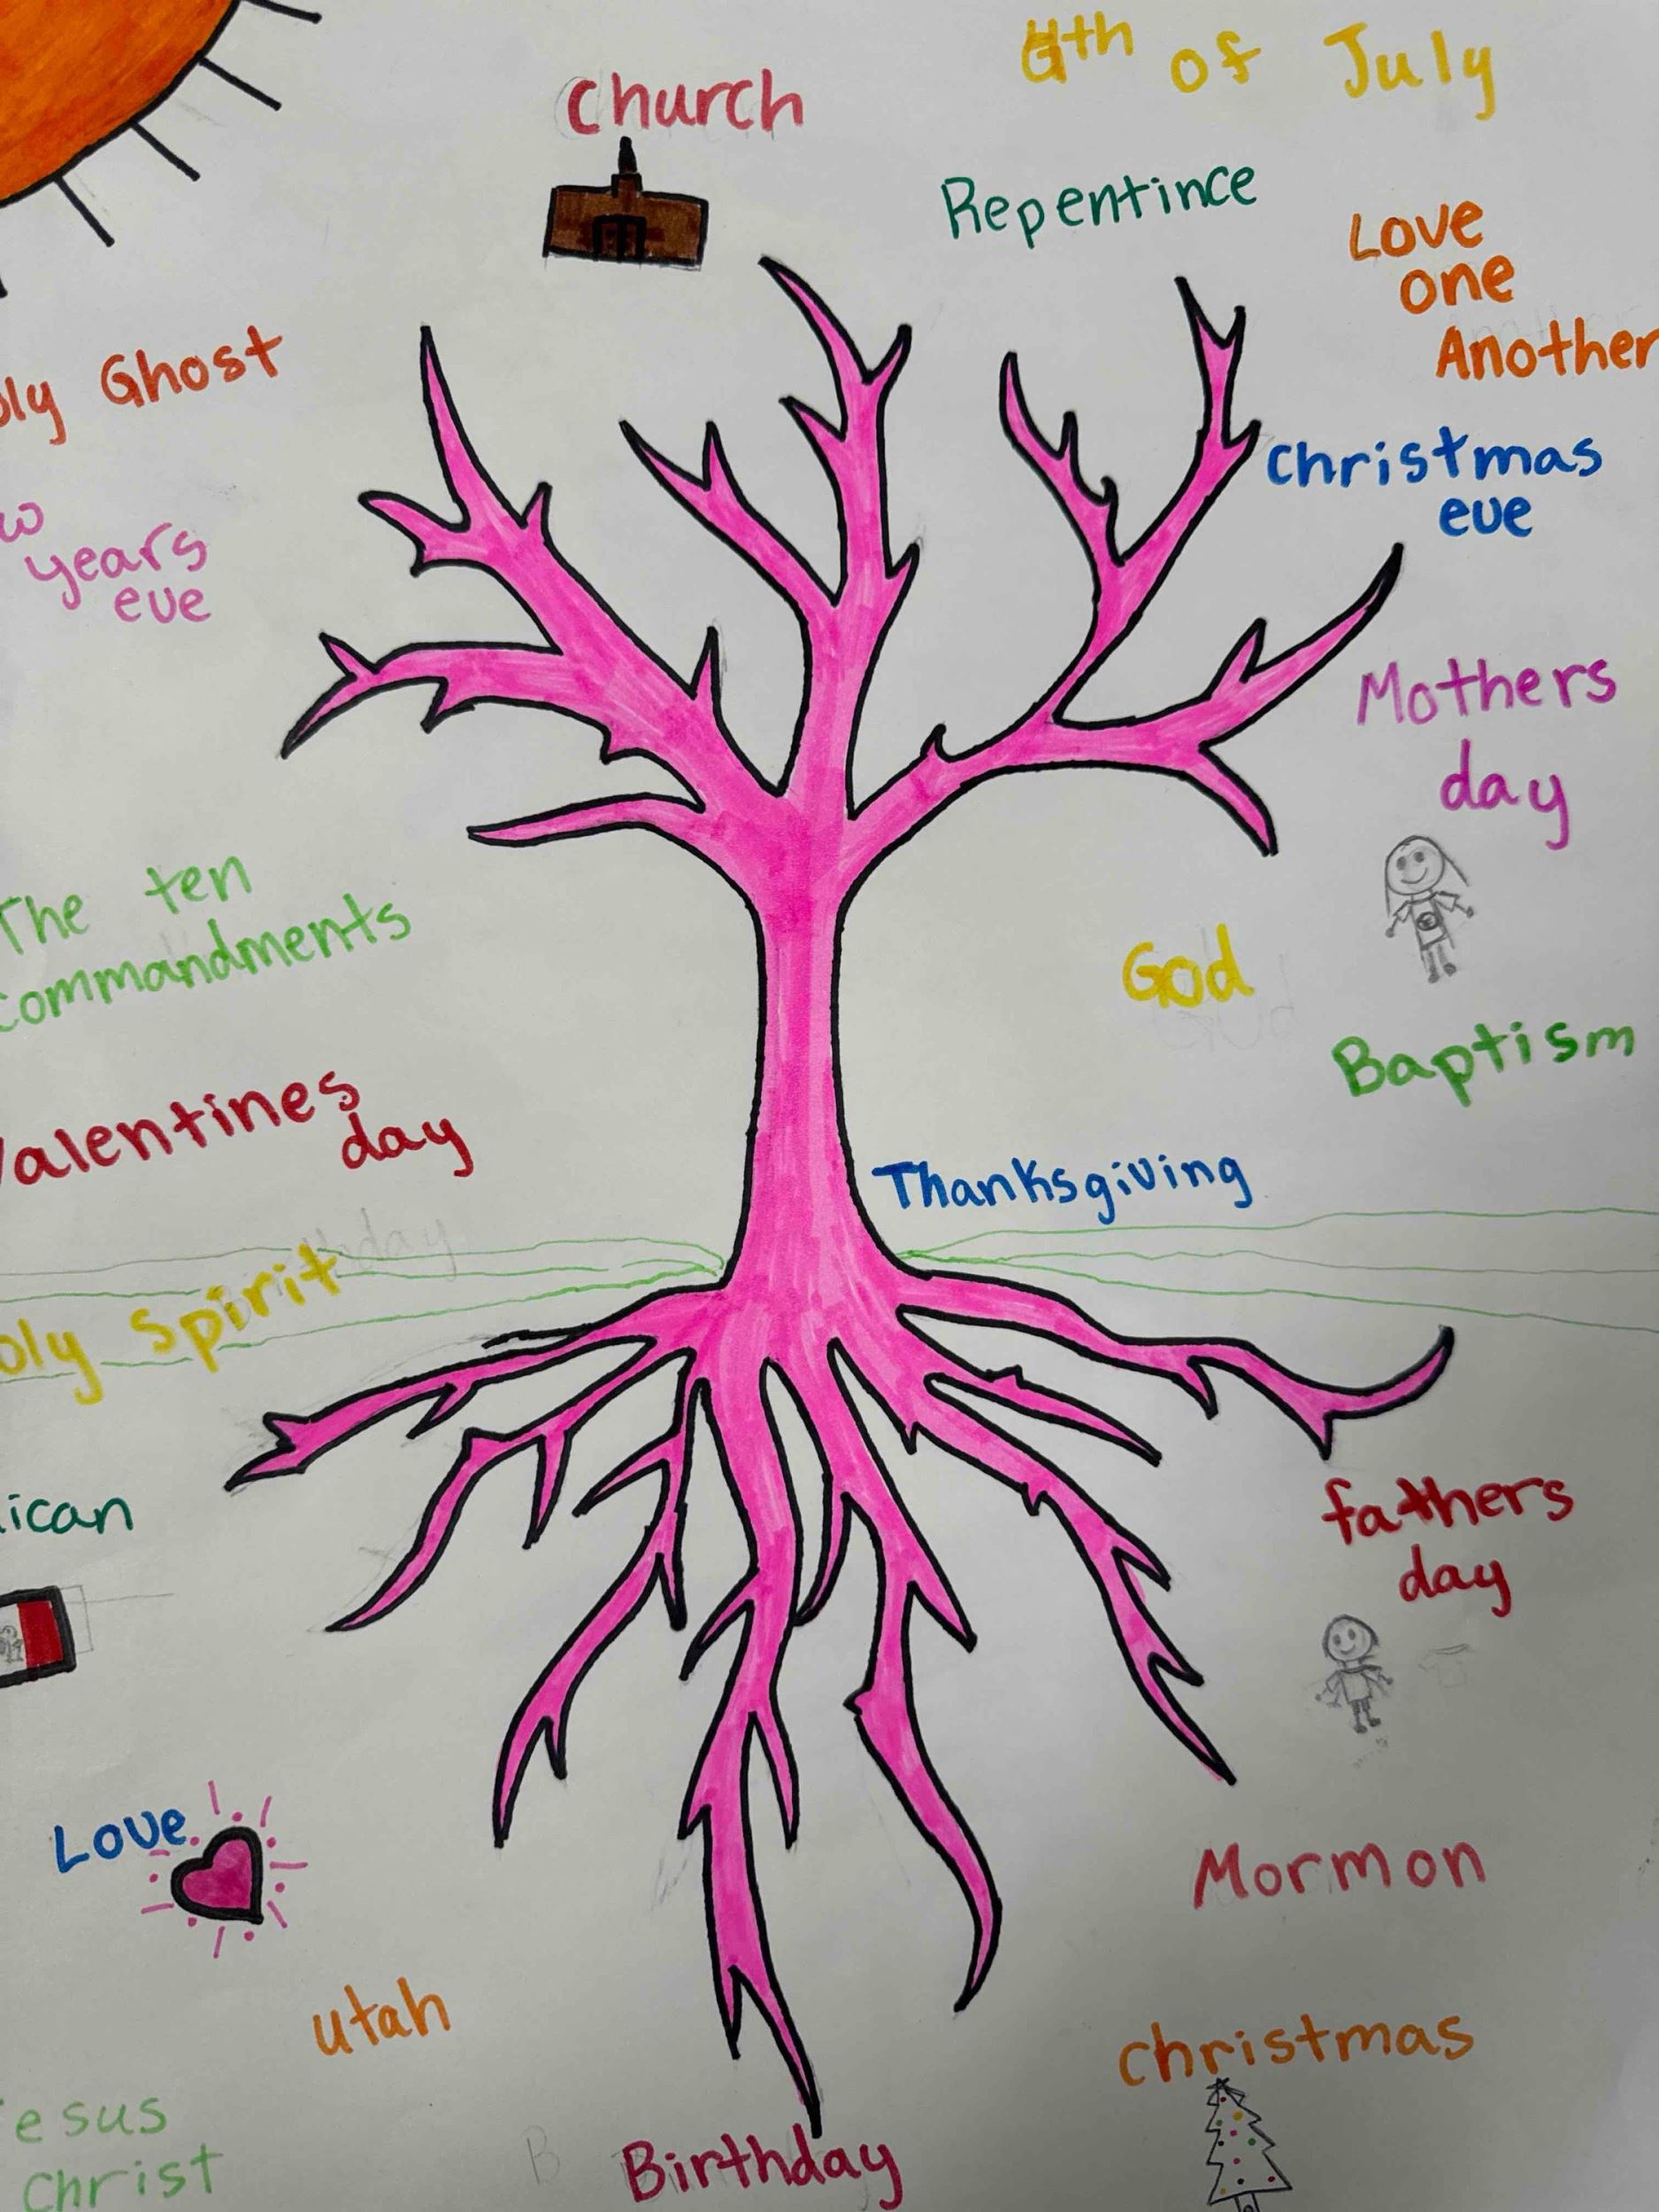 4th of July
church
Repentince
Love
one
Another
oly Ghost
christmas
eve
w
years
eve
Mothers
day
The ten
commandments
God
Baptism
Valentines
day
Thanksgiving
oly Spirit
ican
fathers
day
Love
Mormon
utah
christmas
esus
christ
Birthday